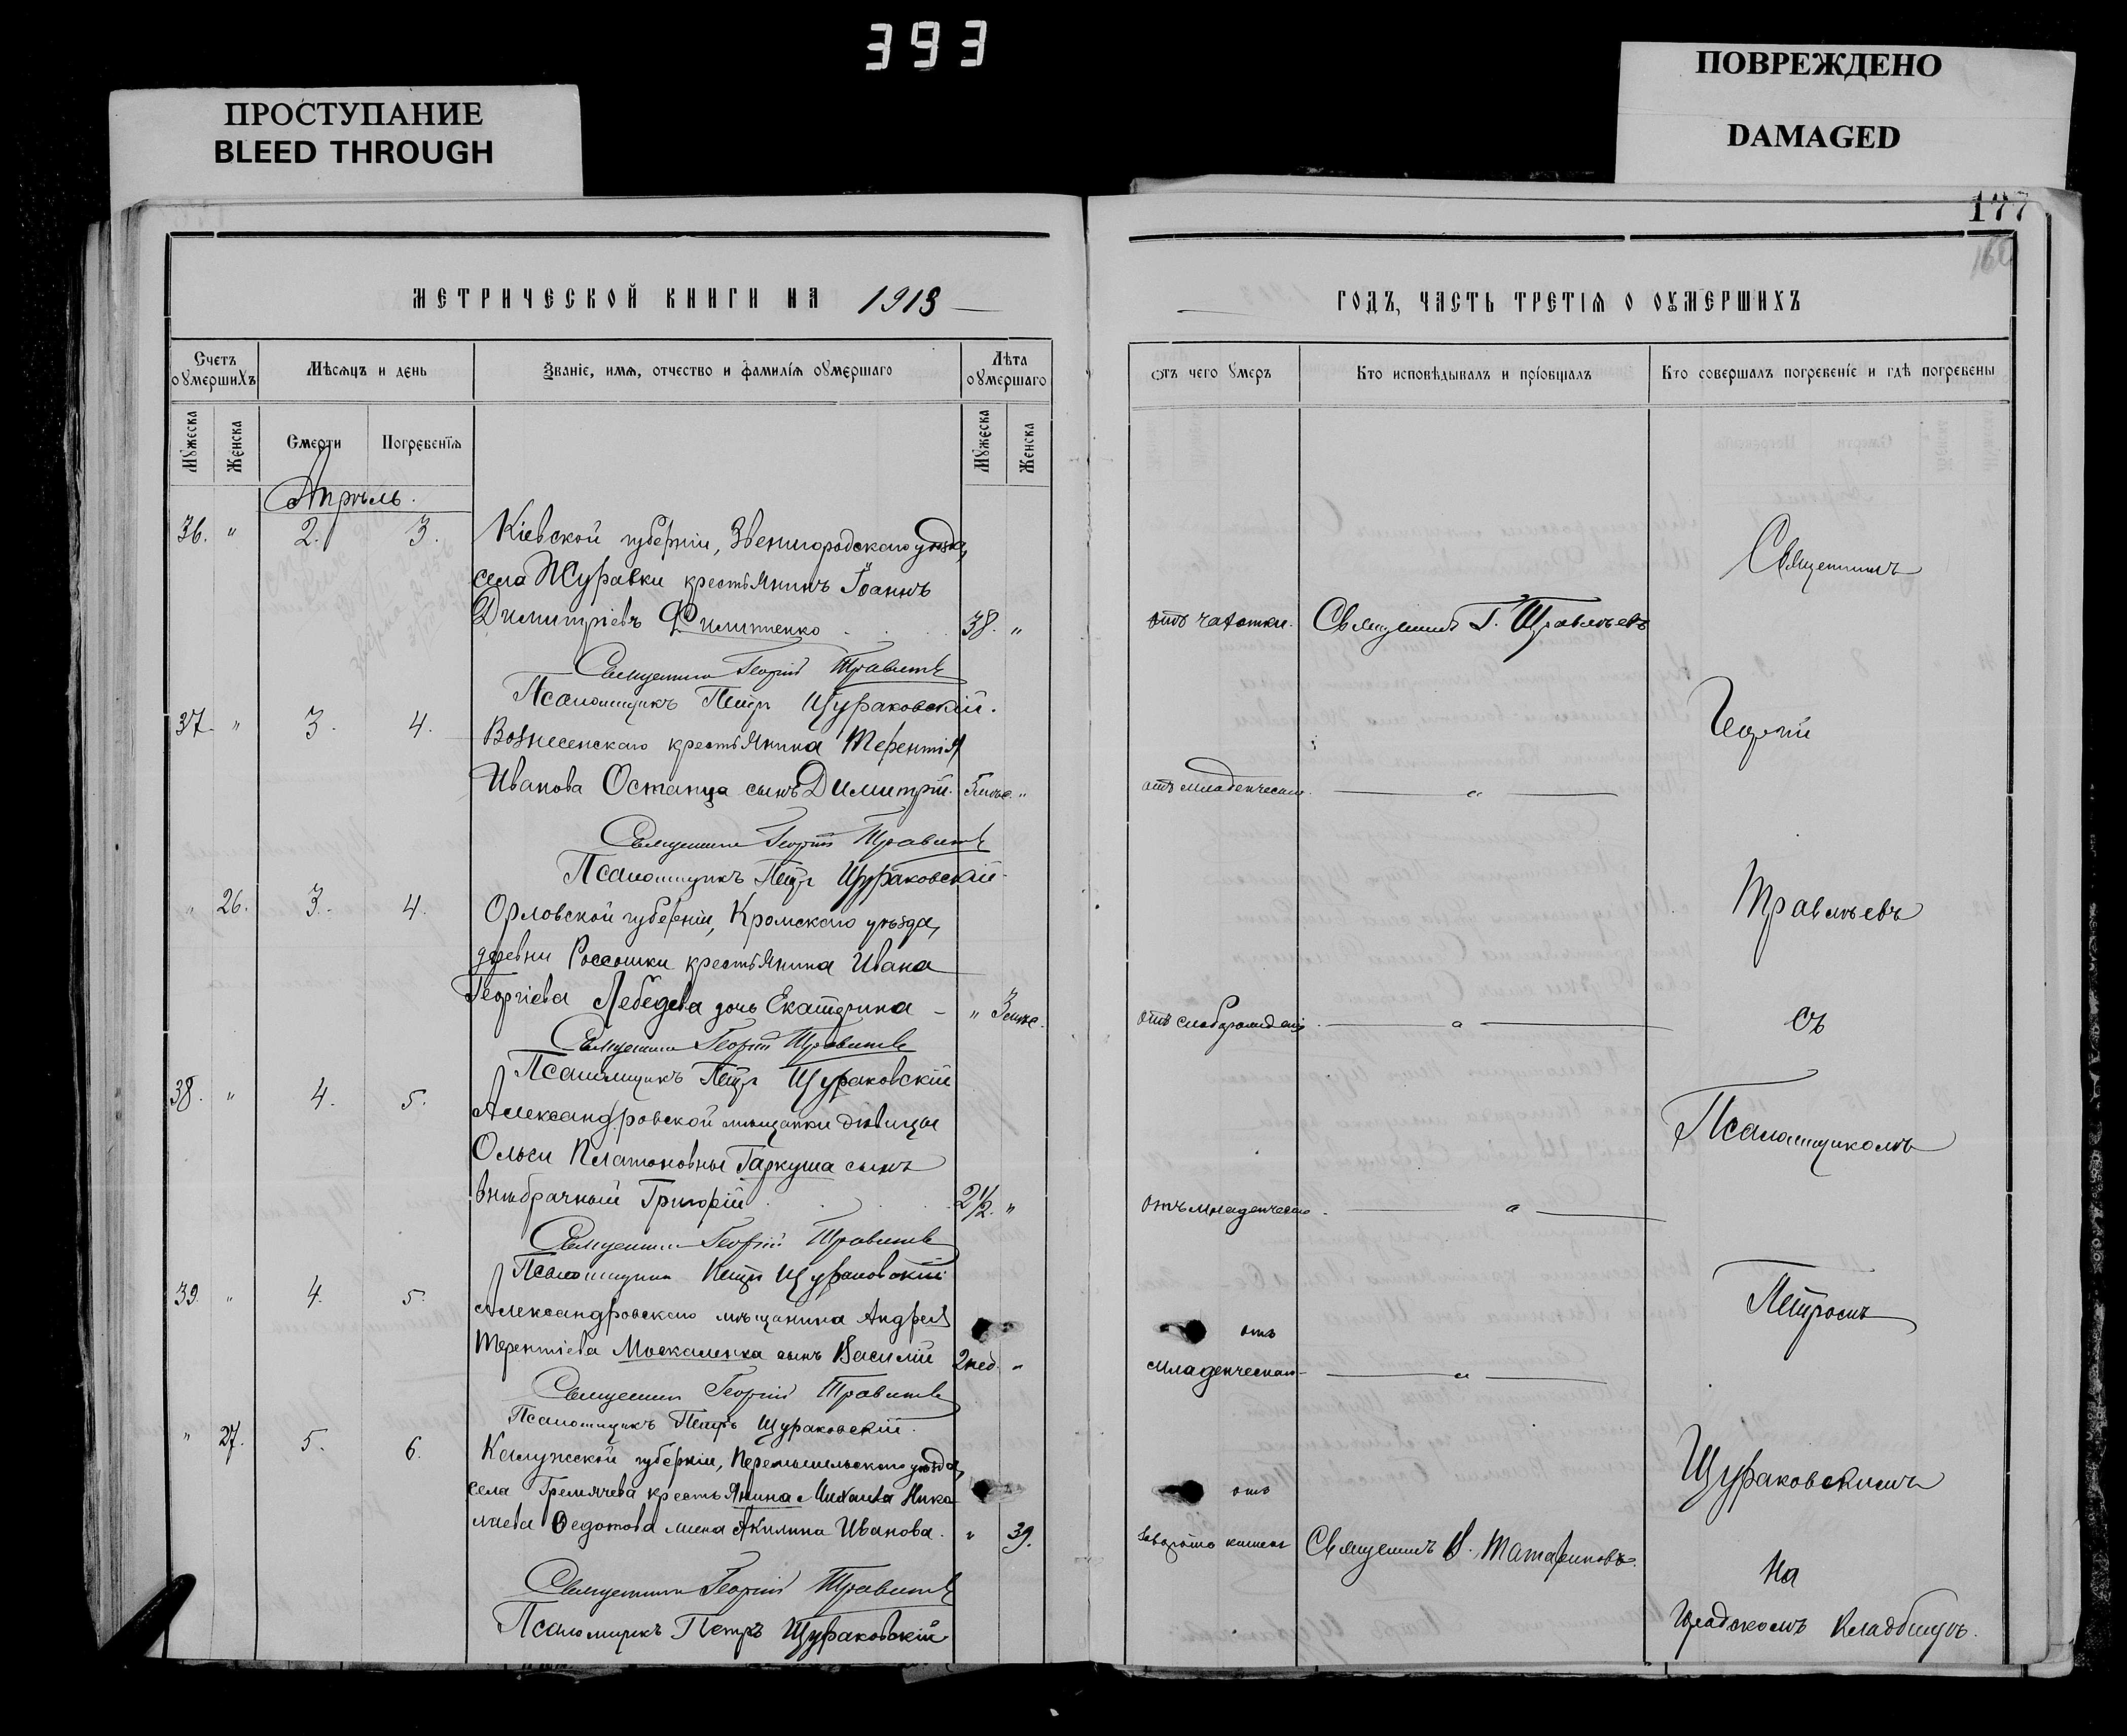 393
ПРОСТУПАНИЕ
BLEED THROUGH
ПОВРЕЖДЕНО
DAMAGED
177
МЕТРИЧЕСКОЙ КНИГИ НА 1913
Счетъ оумершихъ
Мѣсяцъ и день
Званіе, имя, отчество и фамилія оумершаго
Лѣта оумершаго
Мужеска
Женска
Смерти
Погребенія
Мужеска
Женска
Апрѣль.
36. " 2. 3. Кіевской губерніи, Звенигородскаго уѣзда,
села Журавки крестьянинъ Іоаннъ
Димитріевъ Филипенко 38. "
Священникъ Георгій Травлѣевъ
Псаломщикъ Петръ Щураковскій.
37. " 3. 4. Вознесенскаго крестьянина Терентія
Иванова Остапца сынъ Димитрій. 5 мѣс. "
Священникъ Георгій Травлѣевъ
Псаломщикъ Петръ Щураковскій
" 26. 3. 4. Орловской губерніи, Кромскаго уѣзда,
деревни Россошки крестьянина Ивана
Георгіева Лебедева дочь Екатерина "
Священникъ Георгій Травлѣевъ
Псаломщикъ Петръ Щураковскій
38. " 4. 5. Александровской мѣщанки дѣвицы
Ольги Платоновны Гаркуша сынъ
внѣбрачный Григорій 2½. "
Священникъ Георгій Травлѣевъ
Псаломщикъ Петръ Щураковскій
39. " 4. 5. Александровскаго мѣщанина Андрея
Терентіева Москаленка сынъ Василій 2 нед. "
Священникъ Георгій Травлѣевъ
Псаломщикъ Петръ Щураковскій.
" 27. 5. 6. Калужской губерніи, Перемышльскаго уѣзда,
села Гремячева крестьянина Михаила Нико-
лаева Ѳедотова жена Акилина Иванова. " 39.
Священникъ Георгій Травлѣевъ
Псаломщикъ Петръ Щураковскій
ГОДЪ, ЧАСТЬ ТРЕТІЯ О ОУМЕРШИХЪ
Отъ чего умеръ
Кто исповѣдывалъ и пріобщалъ
Кто совершалъ погребеніе и гдѣ погребены
Священникъ
отъ чахотки. Священникъ Г. Травлѣевъ
Георгій
отъ младенческой "
Травлѣевъ
отъ слаборожденія "
съ
Псаломщикомъ
отъ младенческой "
Петромъ
отъ
младенческой "
Щураковскимъ
отъ
заворота кишекъ Священникъ В. Татариновъ.
на
градскомъ кладбищѣ.